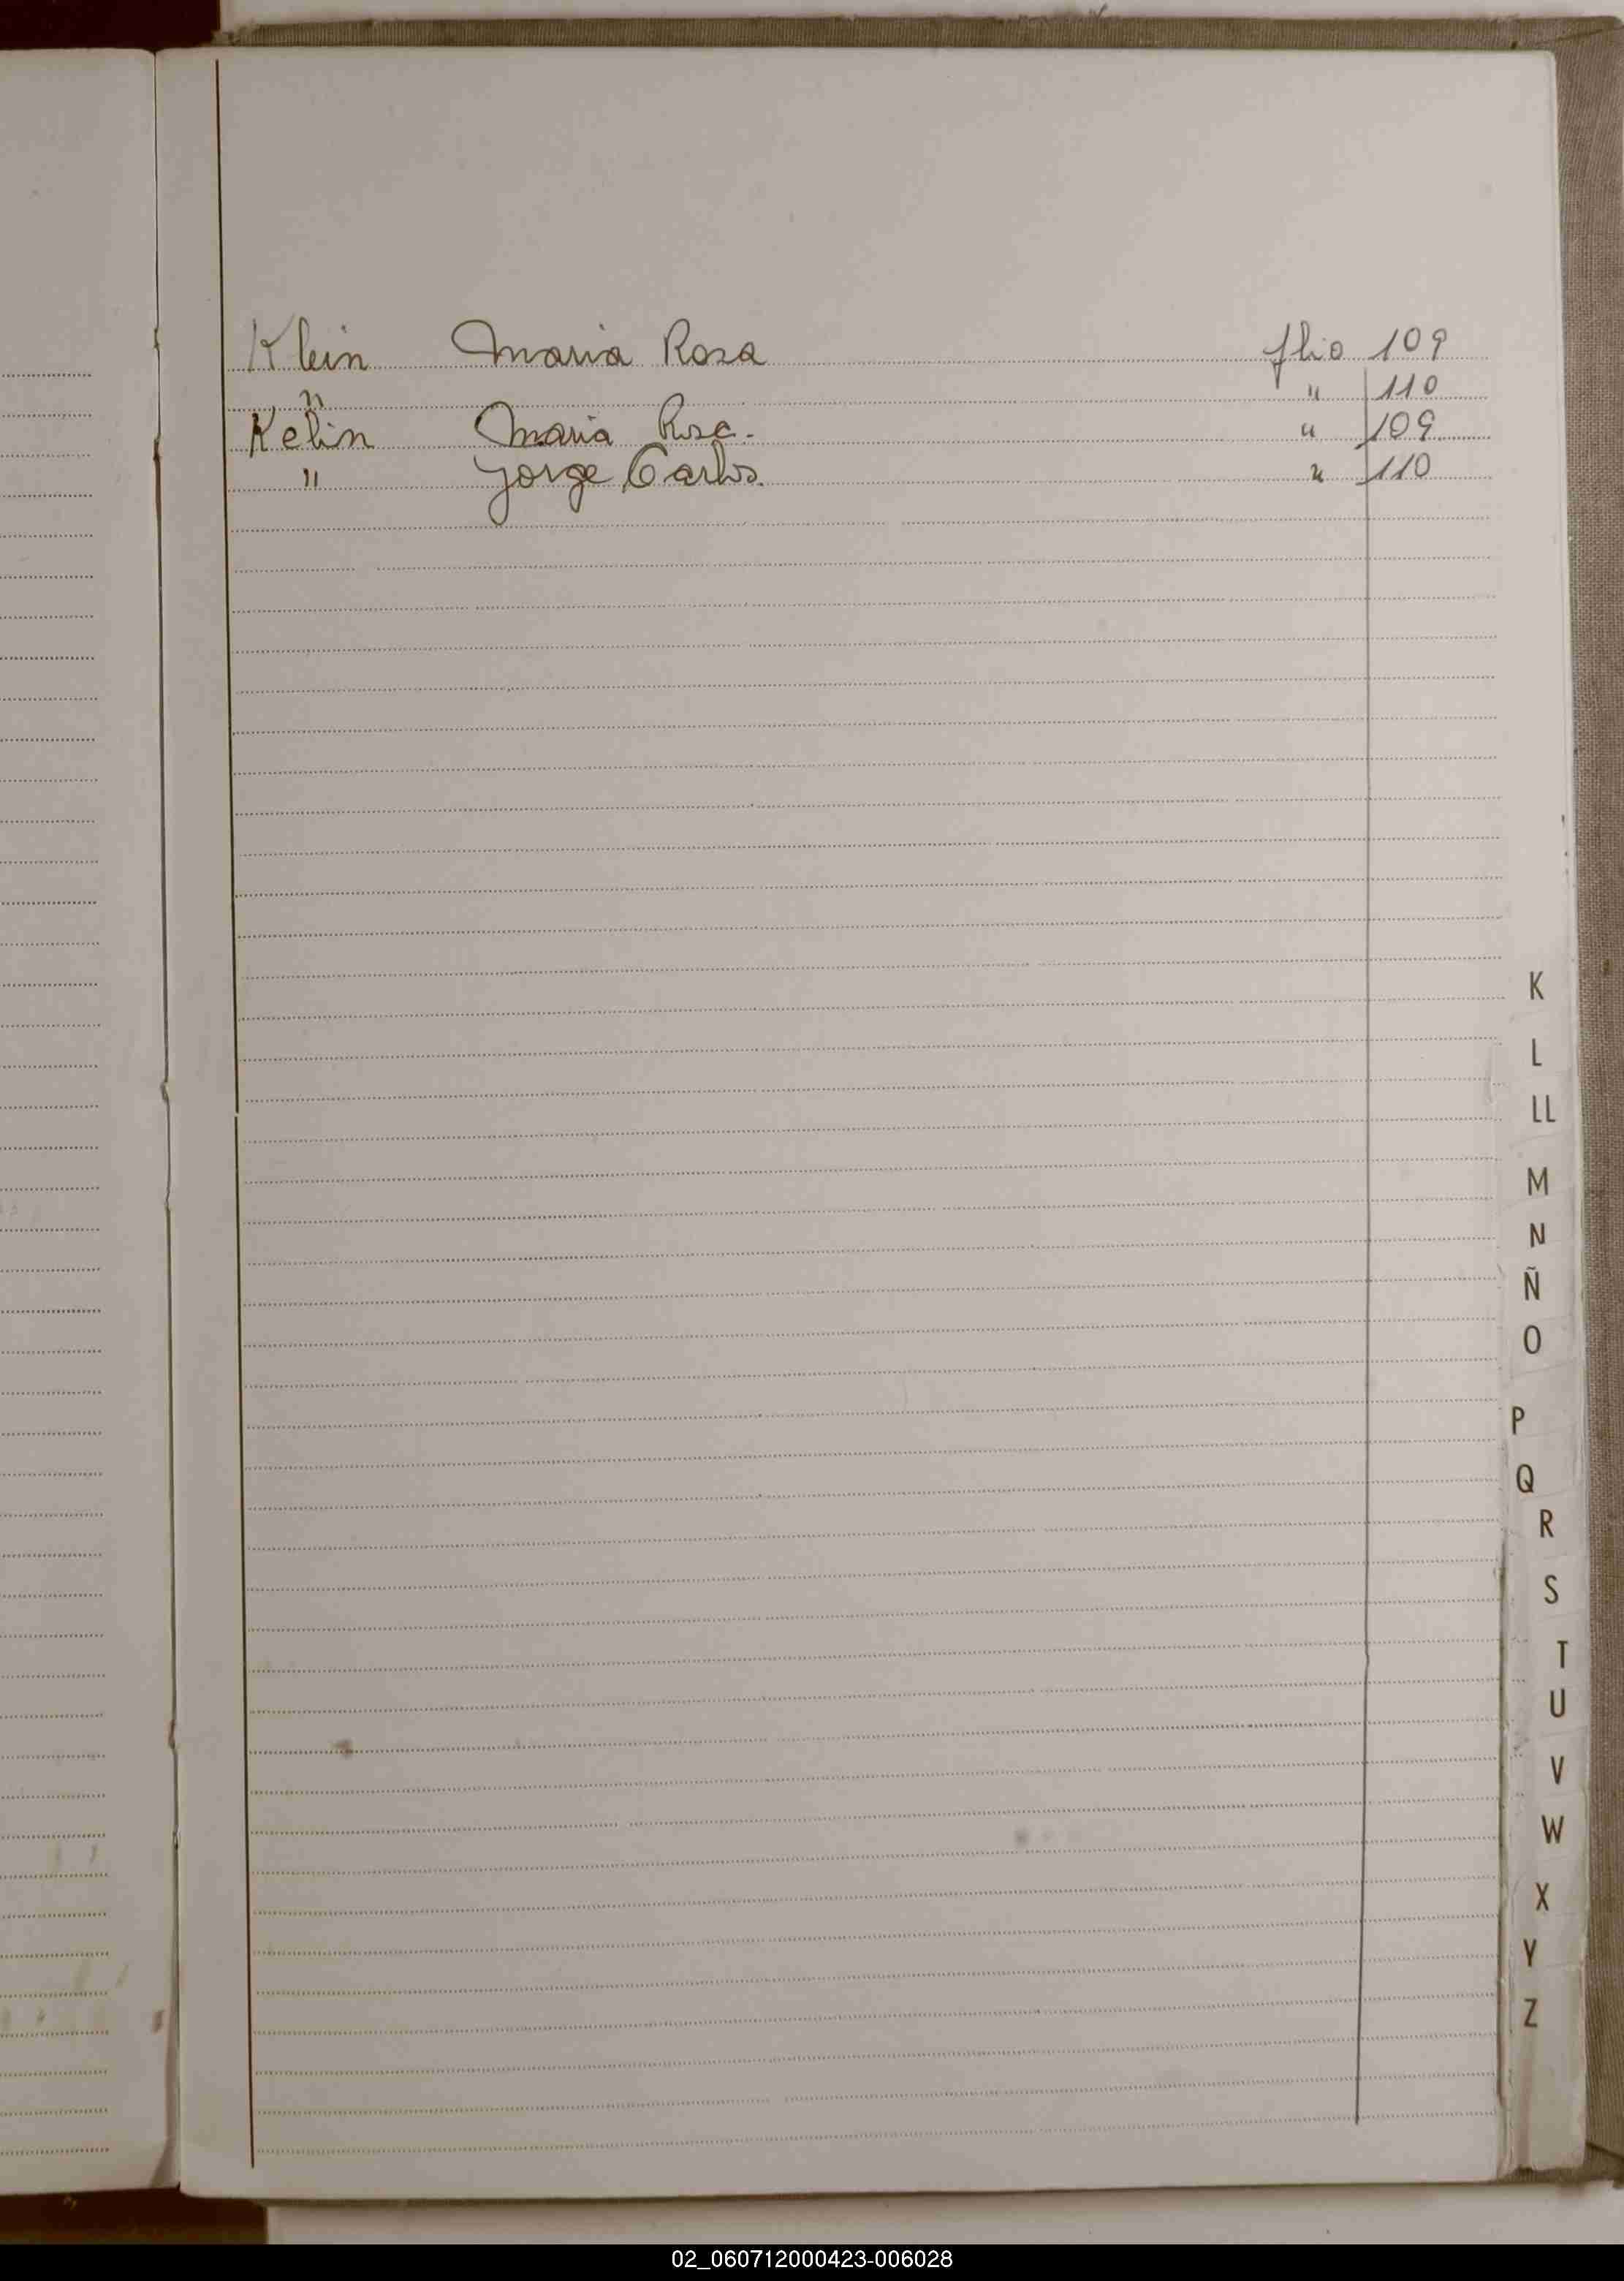 Klein Maria Rosa flio 109
" " 110
Kelin Maria Rosa. " 109
" Jorge Carlos. " 110
K
L
LL
M
N
Ñ
O
P
Q
R
S
T
U
V
W
X
Y
Z
02_060712000423-006028